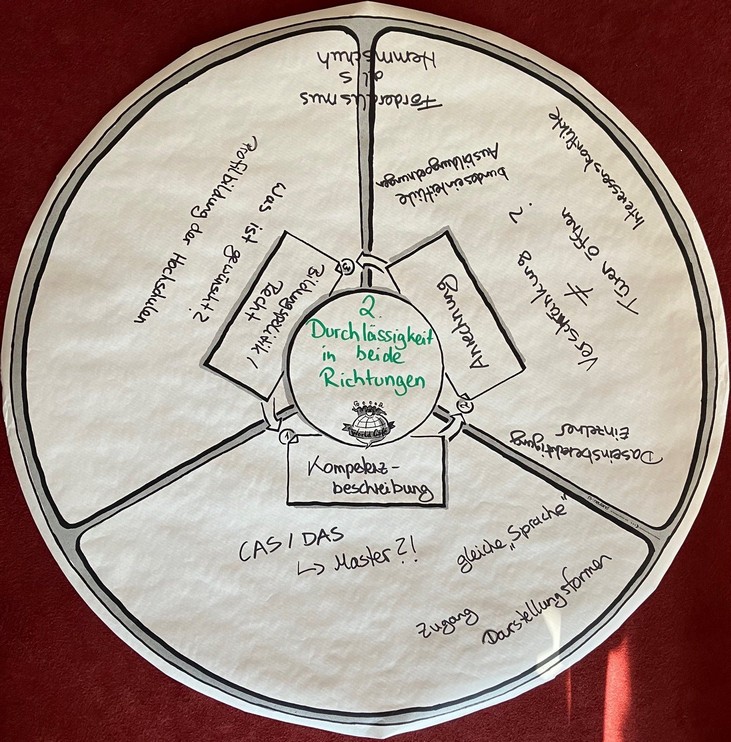 2.
Durchlässigkeit
in beide
Richtungen
World Café
1
Kompetenz-
beschreibung
CAS / DAS
↳ Master?!
gleiche „Sprache"
Zugang
Darstellungsformen
2
Anrechnung
bundeseinheitliche
Ausbildungsordnungen
?
Interessenskonflikte
Türen öffnen
≠
Verschränkung
Daseinsberechtigung
Einzelner
3
Bildungspolitik /
Recht
Was ist gewünscht?
Profilbildung der Hochschulen
Förderalismus
als
Hemmschuh